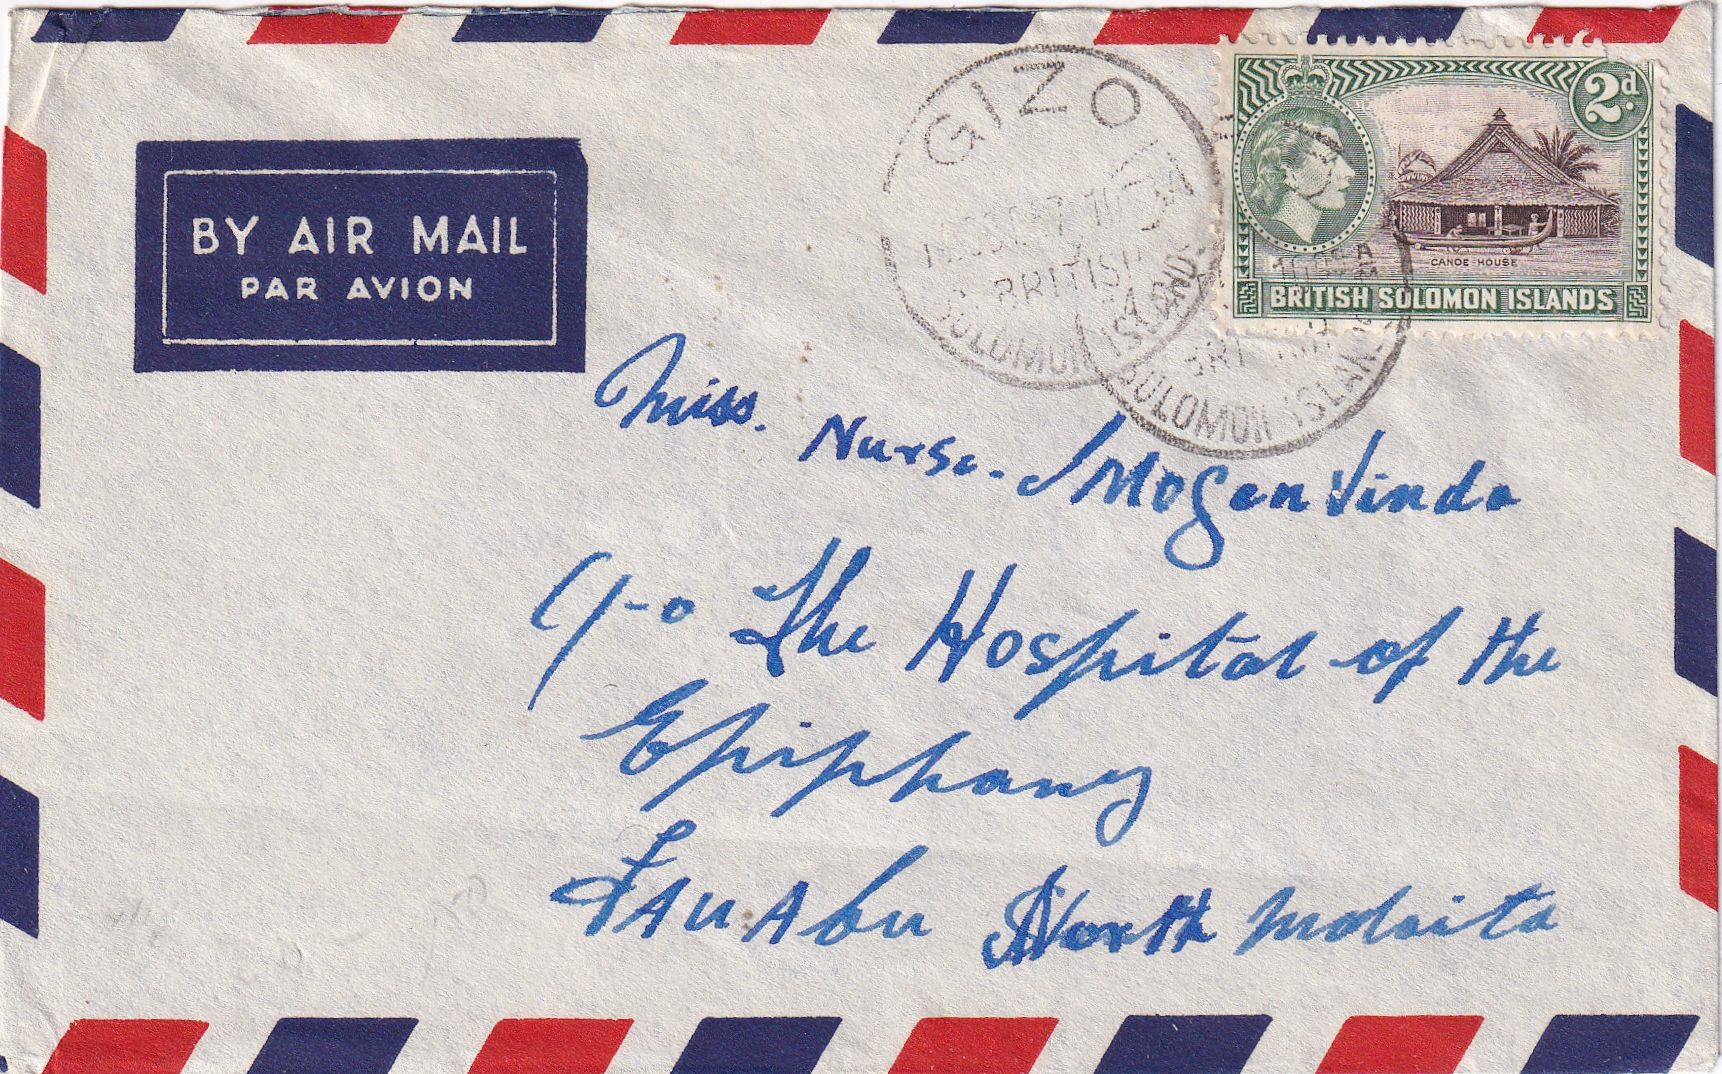 BY AIR MAIL
PAR AVION
GIZO
BRITISH
SOLOMON ISLANDS
SOLOMON ISLANDS
2d.
CANOE HOUSE
BRITISH SOLOMON ISLANDS
Miss. Nurse.
c/-o The Hospital of the
Epiphany
FAUAbu North Malaita